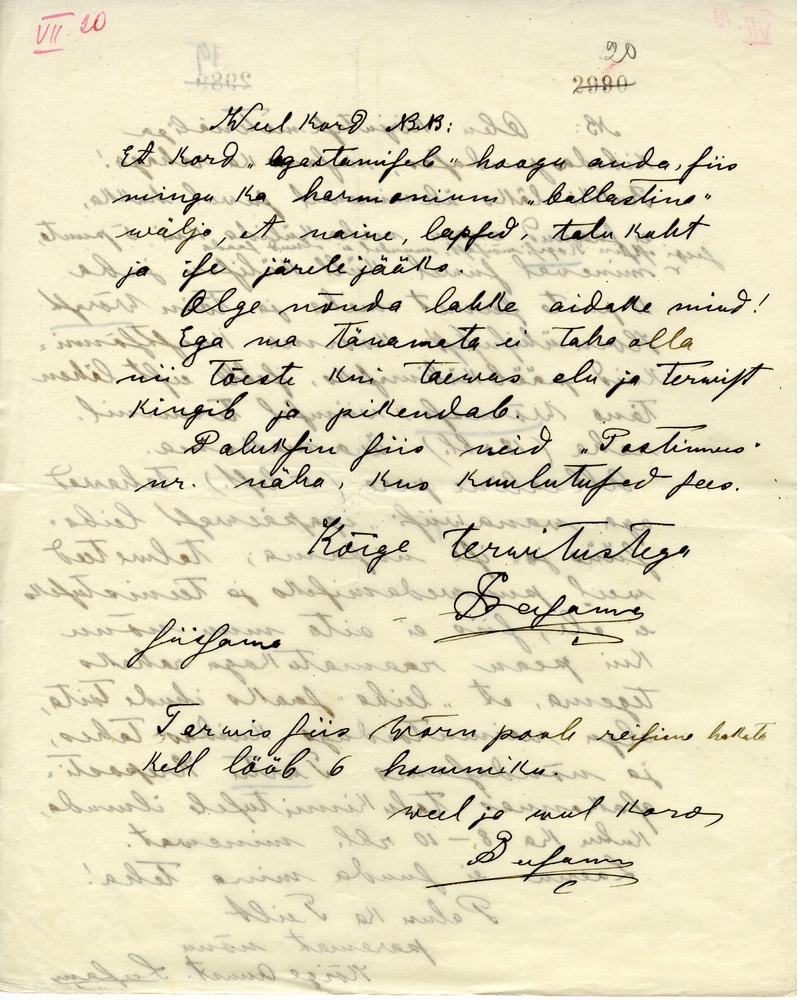 VII 20
20
2990
Weel kord NB.NB:
Et kord „egastamiseb“ hoogu anda, siis
mingu ka harmonium „ballastina“
wälja, et naine, lapsed, talu koht
ja ise järele jääks.
Olge nõnda lahke aidake mind!
Ega ma tänamata ei taha olla
nii tõeste kui taewas elu ja terwist
kingib ja pikendab.
Paluksin siis neid „Postimees“
nr. näha, kus kuulutused sees.
Kõige terwitustega
siissama
Terwis siis Wõru poole reisime hakata
Kell lööb 6 hommiku.
weel ja weel kord